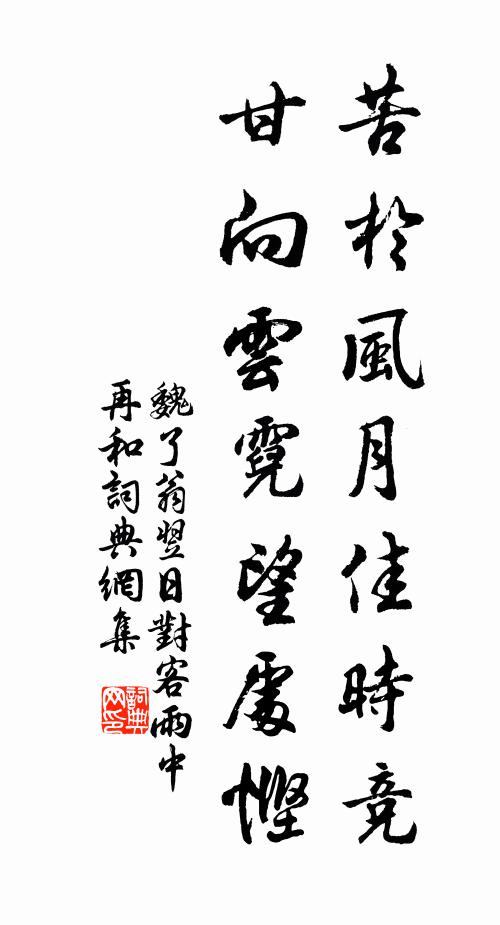 苦於風月佳時竞
甘向雲霓望處慳
魏了翁翌日對客雨中
再和詞典網集
詞典网印